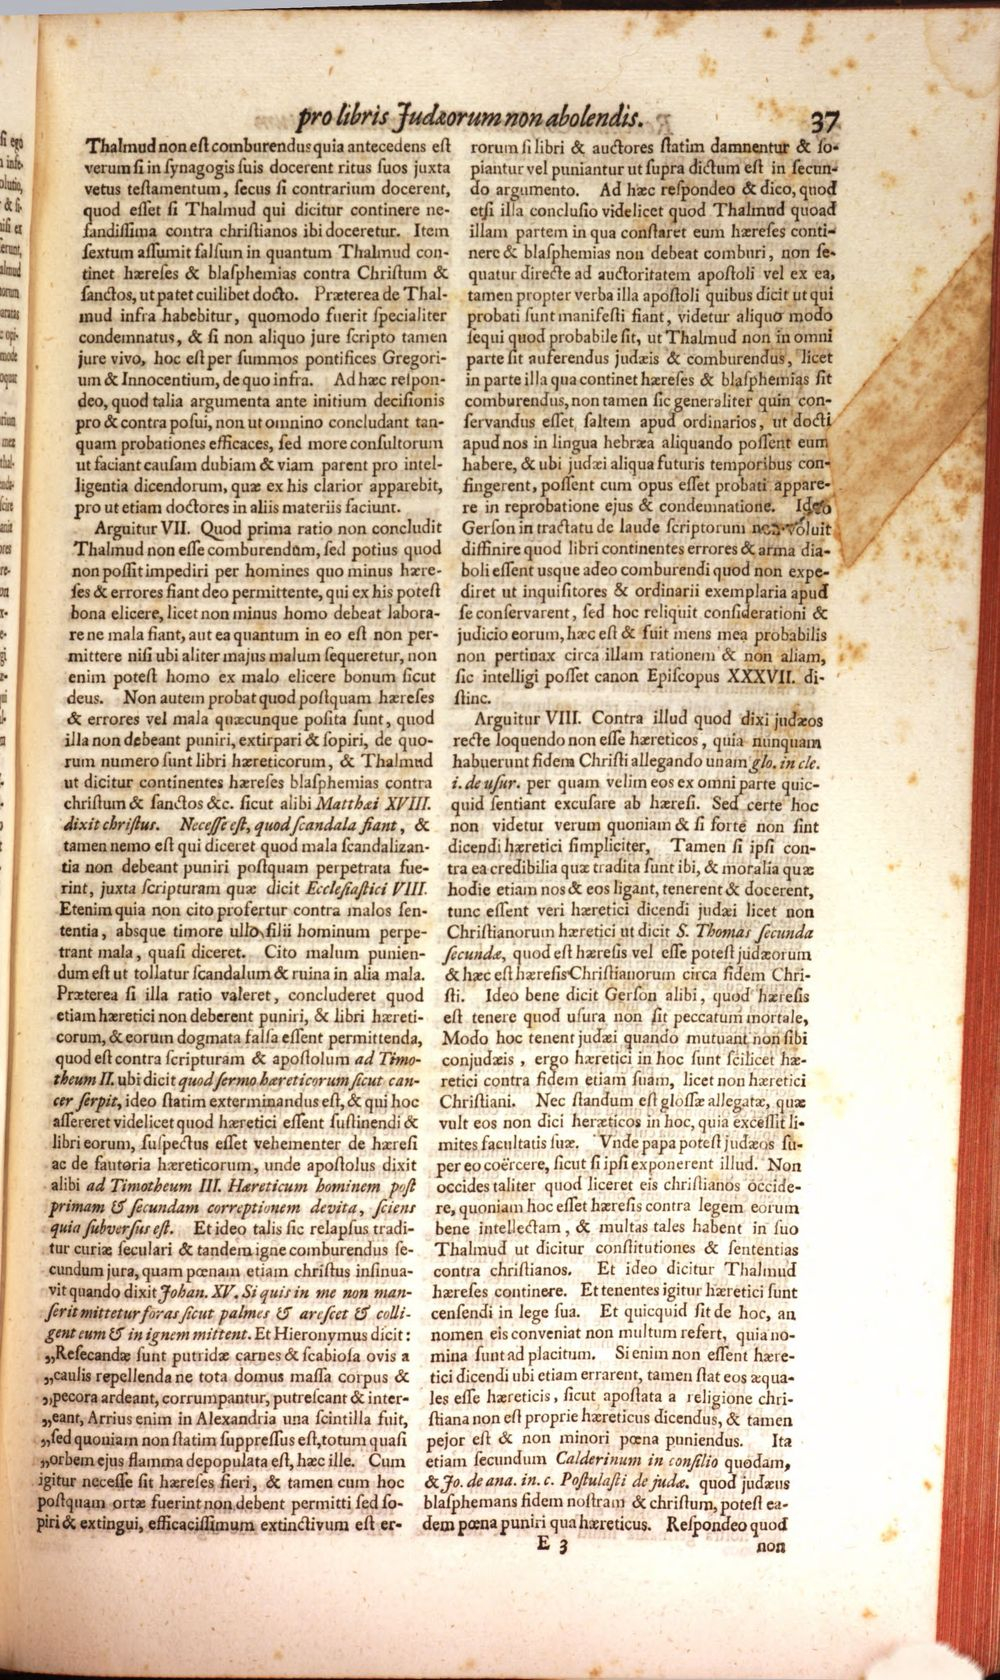 pro libris Judæorum non abolendis. 37
Thalmud non est comburendus quia antecedens est
verum si in synagogis suis docerent ritus suos juxta
vetus testamentum, secus si contrarium docerent,
quod esset si Thalmud qui dicitur continere ne-
fandissima contra christianos ibi doceretur. Item
sextum assumit falsum in quantum Thalmud con-
tinet hæreses & blasphemias contra Christum &
sanctos, ut patet cuilibet docto. Præterea de Thal-
mud infra habebitur, quomodo fuerit specialiter
condemnatus, & si non aliquo jure scripto tamen
jure vivo, hoc est per summos pontifices Gregori-
um & Innocentium, de quo infra. Ad hæc respon-
deo, quod talia argumenta ante initium decisionis
pro & contra posui, non ut omnino concludant tan-
quam probationes efficaces, sed more consultorum
ut faciant causam dubiam & viam parent pro intel-
ligentia dicendorum, quæ ex his clarior apparebit,
pro ut etiam doctores in aliis materiis faciunt.
Arguitur VII. Quod prima ratio non concludit
Thalmud non esse comburendum, sed potius quod
non possit impediri per homines quo minus hære-
ses & errores fiant deo permittente, qui ex his potest
bona elicere, licet non minus homo debeat labora-
re ne mala fiant, aut ea quantum in eo est non per-
mittere nisi ubi aliter majus malum sequeretur, non
enim potest homo ex malo elicere bonum sicut
deus. Non autem probat quod postquam hæreses
& errores vel mala quæcunque posita sunt, quod
illa non debeant puniri, extirpari & sopiri, de quo-
rum numero sunt libri hæreticorum, & Thalmud
ut dicitur continentes hæreses blasphemias contra
christum & sanctos &c. sicut alibi Matthæi XVIII.
dixit christus. Necesse est, quod scandala fiant, &
tamen nemo est qui diceret quod mala scandalizan-
tia non debeant puniri postquam perpetrata fue-
rint, juxta scripturam quæ dicit Ecclesiastici VIII.
Etenim quia non cito profertur contra malos sen-
tentia, absque timore ullo filii hominum perpe-
trant mala, quasi diceret. Cito malum punien-
dum est ut tollatur scandalum & ruina in alia mala.
Præterea si illa ratio valeret, concluderet quod
etiam hæretici non deberent puniri, & libri hæreti-
corum, & eorum dogmata falsa essent permittenda,
quod est contra scripturam & apostolum ad Timo-
theum II. ubi dicit quod sermo hæreticorum sicut can-
cer serpit, ideo statim exterminandus est, & qui hoc
assereret videlicet quod hæretici essent sustinendi &
libri eorum, suspectus esset vehementer de hæresi
ac de fautoria hæreticorum, unde apostolus dixit
alibi ad Timotheum III. Hæreticum hominem post
primam & secundam correptionem devita, sciens
quia subversus est. Et ideo talis sic relapsus tradi-
tur curiæ seculari & tandem igne comburendus se-
cundum jura, quam pœnam etiam christus insinua-
vit quando dixit Johan. XV. Si quis in me non man-
serit mittetur foras sicut palmes & arescet & colli-
gent eum & in ignem mittent. Et Hieronymus dicit:
„Resecandæ sunt putridæ carnes & scabiosa ovis a
„caulis repellenda ne tota domus massa corpus &
„pecora ardeant, corrumpantur, putrescant & inter-
„eant, Arrius enim in Alexandria una scintilla fuit,
„sed quoniam non statim suppressus est, totum quasi
„orbem ejus flamma depopulata est, hæc ille. Cum
igitur necesse sit hæreses fieri, & tamen cum hoc
postquam ortæ fuerint non debent permitti sed so-
piri & extingui, efficacissimum extinctivum est er-
rorum si libri & auctores statim damnentur & so-
piantur vel puniantur ut supra dictum est in secun-
do argumento. Ad hæc respondeo & dico, quod
etsi illa conclusio videlicet quod Thalmud quoad
illam partem in qua constaret eum hæreses conti-
nere & blasphemias non debeat comburi, non se-
quatur directe ad auctoritatem apostoli vel ex ea,
tamen propter verba illa apostoli quibus dicit ut qui
probati sunt manifesti fiant, videtur aliquo modo
sequi quod probabile sit, ut Thalmud non in omni
parte sit auferendus judæis & comburendus, licet
in parte illa qua continet hæreses & blasphemias sit
comburendus, non tamen sic generaliter quin con-
servandus esset, saltem apud ordinarios, ut docti
apud nos in lingua hebræa aliquando possent eum
habere, & ubi judæi aliqua futuris temporibus con-
fingerent, possent cum opus esset probati appare-
re in reprobatione ejus & condemnatione. Ideo
Gerson in tractatu de laude scriptorum non voluit
diffinire quod libri continentes errores & arma dia-
boli essent usque adeo comburendi quod non expe-
diret ut inquisitores & ordinarii exemplaria apud
se conservarent, sed hoc reliquit considerationi &
judicio eorum, hæc est & fuit mens mea probabilis
non pertinax circa illam rationem & non aliam,
sic intelligi posset canon Episcopus XXXVII. di-
stinc.
Arguitur VIII. Contra illud quod dixi judæos
recte loquendo non esse hæreticos, quia nunquam
habuerunt fidem Christi allegando unam glo. in cle.
i. de usur. per quam velim eos ex omni parte quic-
quid sentiant excusare ab hæresi. Sed certe hoc
non videtur verum quoniam & si forte non sint
dicendi hæretici simpliciter, Tamen si ipsi con-
tra ea credibilia quæ tradita sunt ibi, & moralia quæ
hodie etiam nos & eos ligant, tenerent & docerent,
tunc essent veri hæretici dicendi judæi licet non
Christianorum hæretici ut dicit S. Thomas secunda
secundæ, quod est hæresis vel esse potest judæorum
& hæc est hæresis Christianorum circa fidem Chri-
sti. Ideo bene dicit Gerson alibi, quod hæresis
est tenere quod usura non sit peccatum mortale,
Modo hoc tenent judæi quando mutuant non sibi
conjudæis, ergo hæretici in hoc sunt scilicet hæ-
retici contra fidem etiam suam, licet non hæretici
Christiani. Nec standum est glossæ allegatæ, quæ
vult eos non dici heræticos in hoc, quia excessit li-
mites facultatis suæ. Vnde papa potest judæos su-
per eo coërcere, sicut si ipsi exponerent illud. Non
occides taliter quod liceret eis christianos occide-
re, quoniam hoc esset hæresis contra legem eorum
bene intellectam, & multas tales habent in suo
Thalmud ut dicitur constitutiones & sententias
contra christianos. Et ideo dicitur Thalmud
hæreses continere. Et tenentes igitur hæretici sunt
censendi in lege sua. Et quicquid sit de hoc, an
nomen eis conveniat non multum refert, quia no-
mina sunt ad placitum. Si enim non essent hære-
tici dicendi ubi etiam errarent, tamen stat eos æqua-
les esse hæreticis, sicut apostata a religione chri-
stiana non est proprie hæreticus dicendus, & tamen
pejor est & non minori pœna puniendus. Ita
etiam secundum Calderinum in consilio quodam,
& Jo. de ana. in. c. Postulasti de judæ. quod judæus
blasphemans fidem nostram & christum, potest ea-
dem pœna puniri qua hæreticus. Respondeo quod
E 3 non